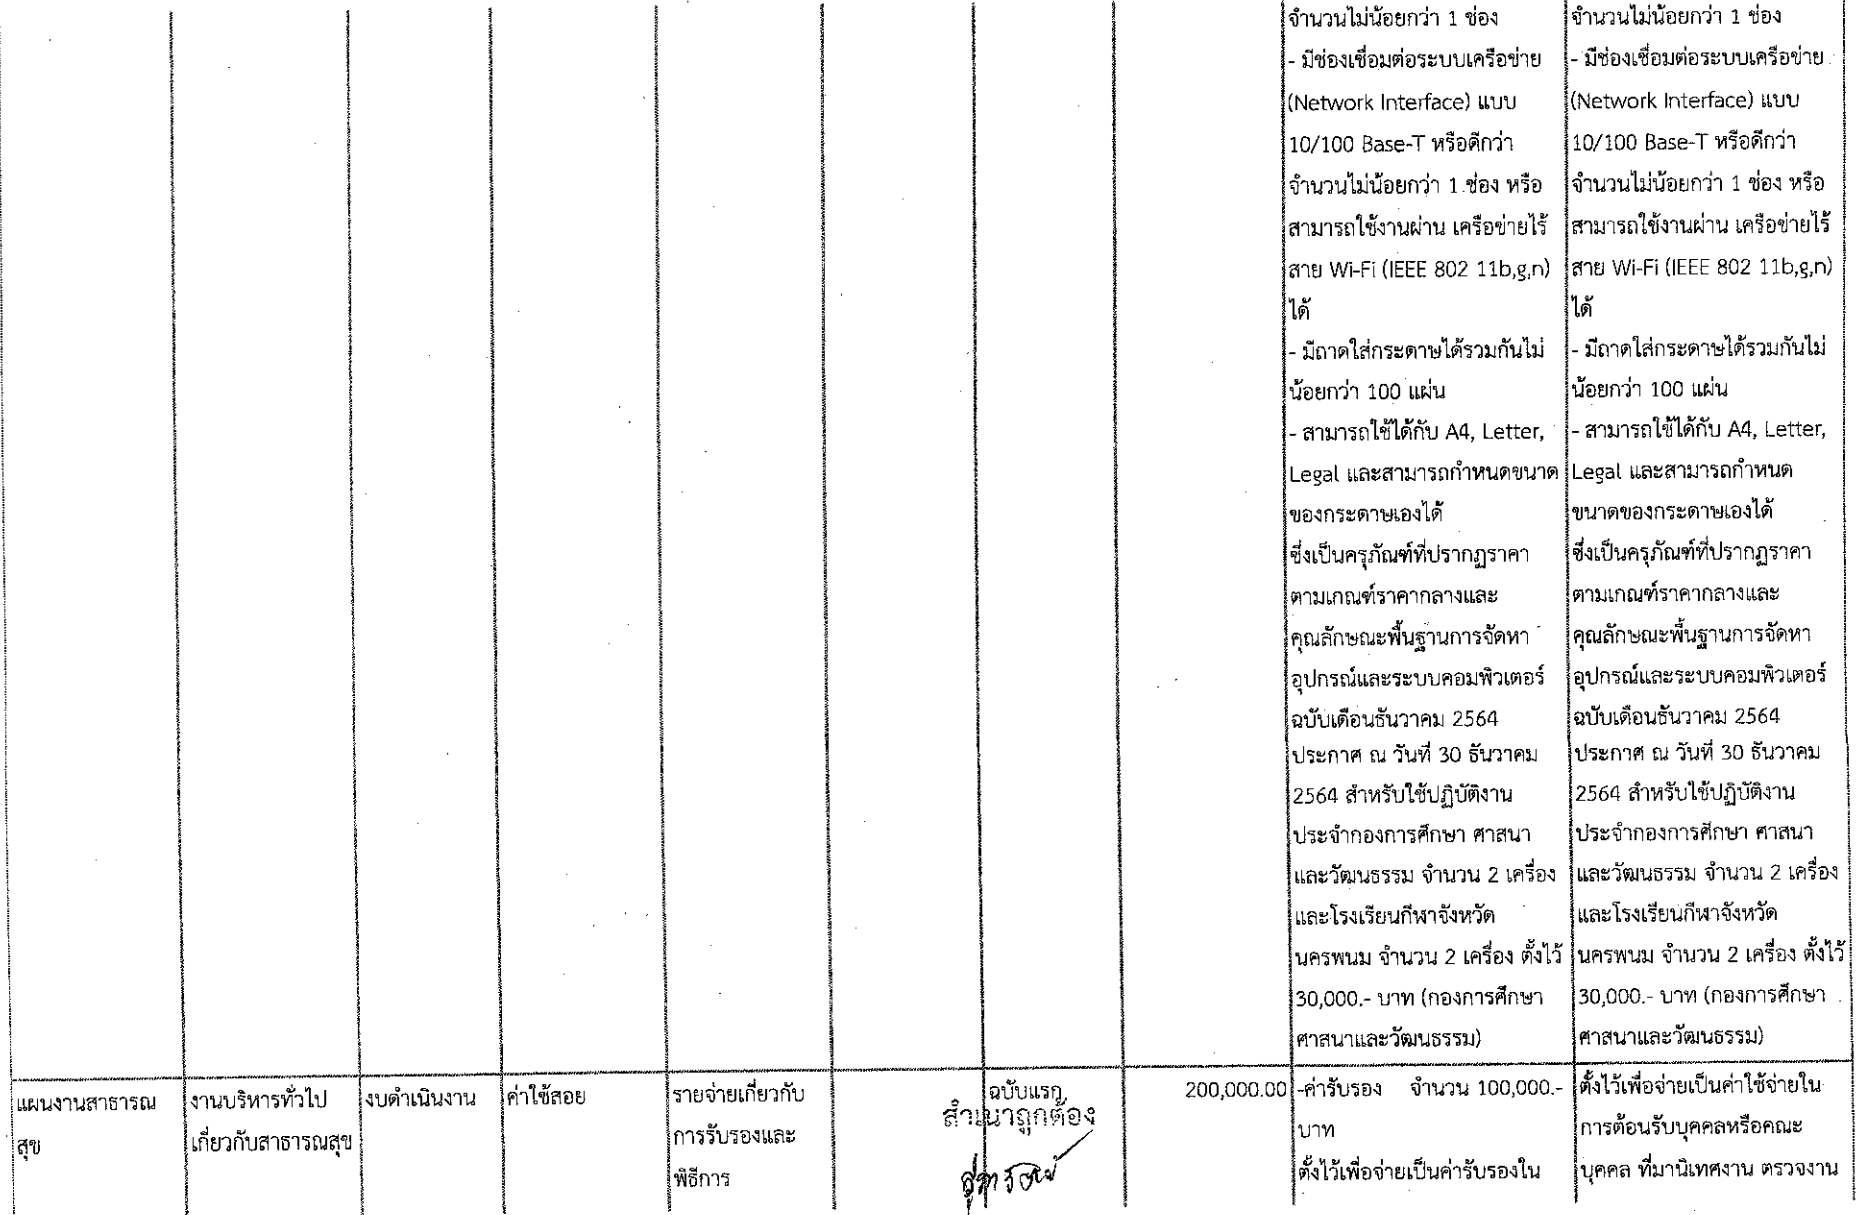 จำนวนไม่น้อยกว่า 1 ช่อง
- มีช่องเชื่อมต่อระบบเครือข่าย
(Network Interface) แบบ
10/100 Base-T หรือดีกว่า
จำนวนไม่น้อยกว่า 1 ช่อง หรือ
สามารถใช้งานผ่าน เครือข่ายไร้
สาย Wi-Fi (IEEE 802 11b,g,n)
ได้
- มีถาดใส่กระดาษได้รวมกันไม่
น้อยกว่า 100 แผ่น
- สามารถใช้ได้กับ A4, Letter,
Legal และสามารถกำหนดขนาด
ของกระดาษเองได้
ซึ่งเป็นครุภัณฑ์ที่ปรากฏราคา
ตามเกณฑ์ราคากลางและ
คุณลักษณะพื้นฐานการจัดหา
อุปกรณ์และระบบคอมพิวเตอร์
ฉบับเดือนธันวาคม 2564
ประกาศ ณ วันที่ 30 ธันวาคม
2564 สำหรับใช้ปฏิบัติงาน
ประจำกองการศึกษา ศาสนา
และวัฒนธรรม จำนวน 2 เครื่อง
และโรงเรียนกีฬาจังหวัด
นครพนม จำนวน 2 เครื่อง ตั้งไว้
30,000.- บาท (กองการศึกษา
ศาสนาและวัฒนธรรม)
จำนวนไม่น้อยกว่า 1 ช่อง
- มีช่องเชื่อมต่อระบบเครือข่าย
(Network Interface) แบบ
10/100 Base-T หรือดีกว่า
จำนวนไม่น้อยกว่า 1 ช่อง หรือ
สามารถใช้งานผ่าน เครือข่ายไร้
สาย Wi-Fi (IEEE 802 11b,g,n)
ได้
- มีถาดใส่กระดาษได้รวมกันไม่
น้อยกว่า 100 แผ่น
- สามารถใช้ได้กับ A4, Letter,
Legal และสามารถกำหนด
ขนาดของกระดาษเองได้
ซึ่งเป็นครุภัณฑ์ที่ปรากฏราคา
ตามเกณฑ์ราคากลางและ
คุณลักษณะพื้นฐานการจัดหา
อุปกรณ์และระบบคอมพิวเตอร์
ฉบับเดือนธันวาคม 2564
ประกาศ ณ วันที่ 30 ธันวาคม
2564 สำหรับใช้ปฏิบัติงาน
ประจำกองการศึกษา ศาสนา
และวัฒนธรรม จำนวน 2 เครื่อง
และโรงเรียนกีฬาจังหวัด
นครพนม จำนวน 2 เครื่อง ตั้งไว้
30,000.- บาท (กองการศึกษา
ศาสนาและวัฒนธรรม)
แผนงานสาธารณ
สุข
งานบริหารทั่วไป
เกี่ยวกับสาธารณสุข
งบดำเนินงาน
ค่าใช้สอย
รายจ่ายเกี่ยวกับ
การรับรองและ
พิธีการ
ฉบับแรก
สำเนาถูกต้อง
200,000.00
-ค่ารับรอง จำนวน 100,000.-
บาท
ตั้งไว้เพื่อจ่ายเป็นค่ารับรองใน
ตั้งไว้เพื่อจ่ายเป็นค่าใช้จ่ายใน
การต้อนรับบุคคลหรือคณะ
บุคคล ที่มานิเทศงาน ตรวจงาน